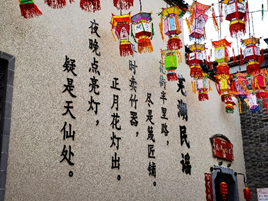 湖民謠
街半里路，
尽是篾匠铺。
时卖竹器，
正月花灯出。
夜晚点亮灯，
疑是天仙处。